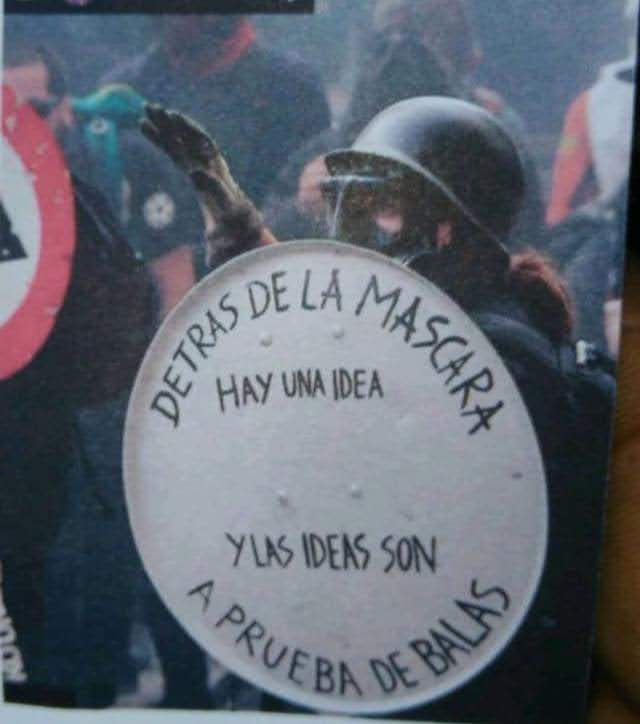 DETRAS DE LA MASCARA
HAY UNA IDEA
Y LAS IDEAS SON
A PRUEBA DE BALAS